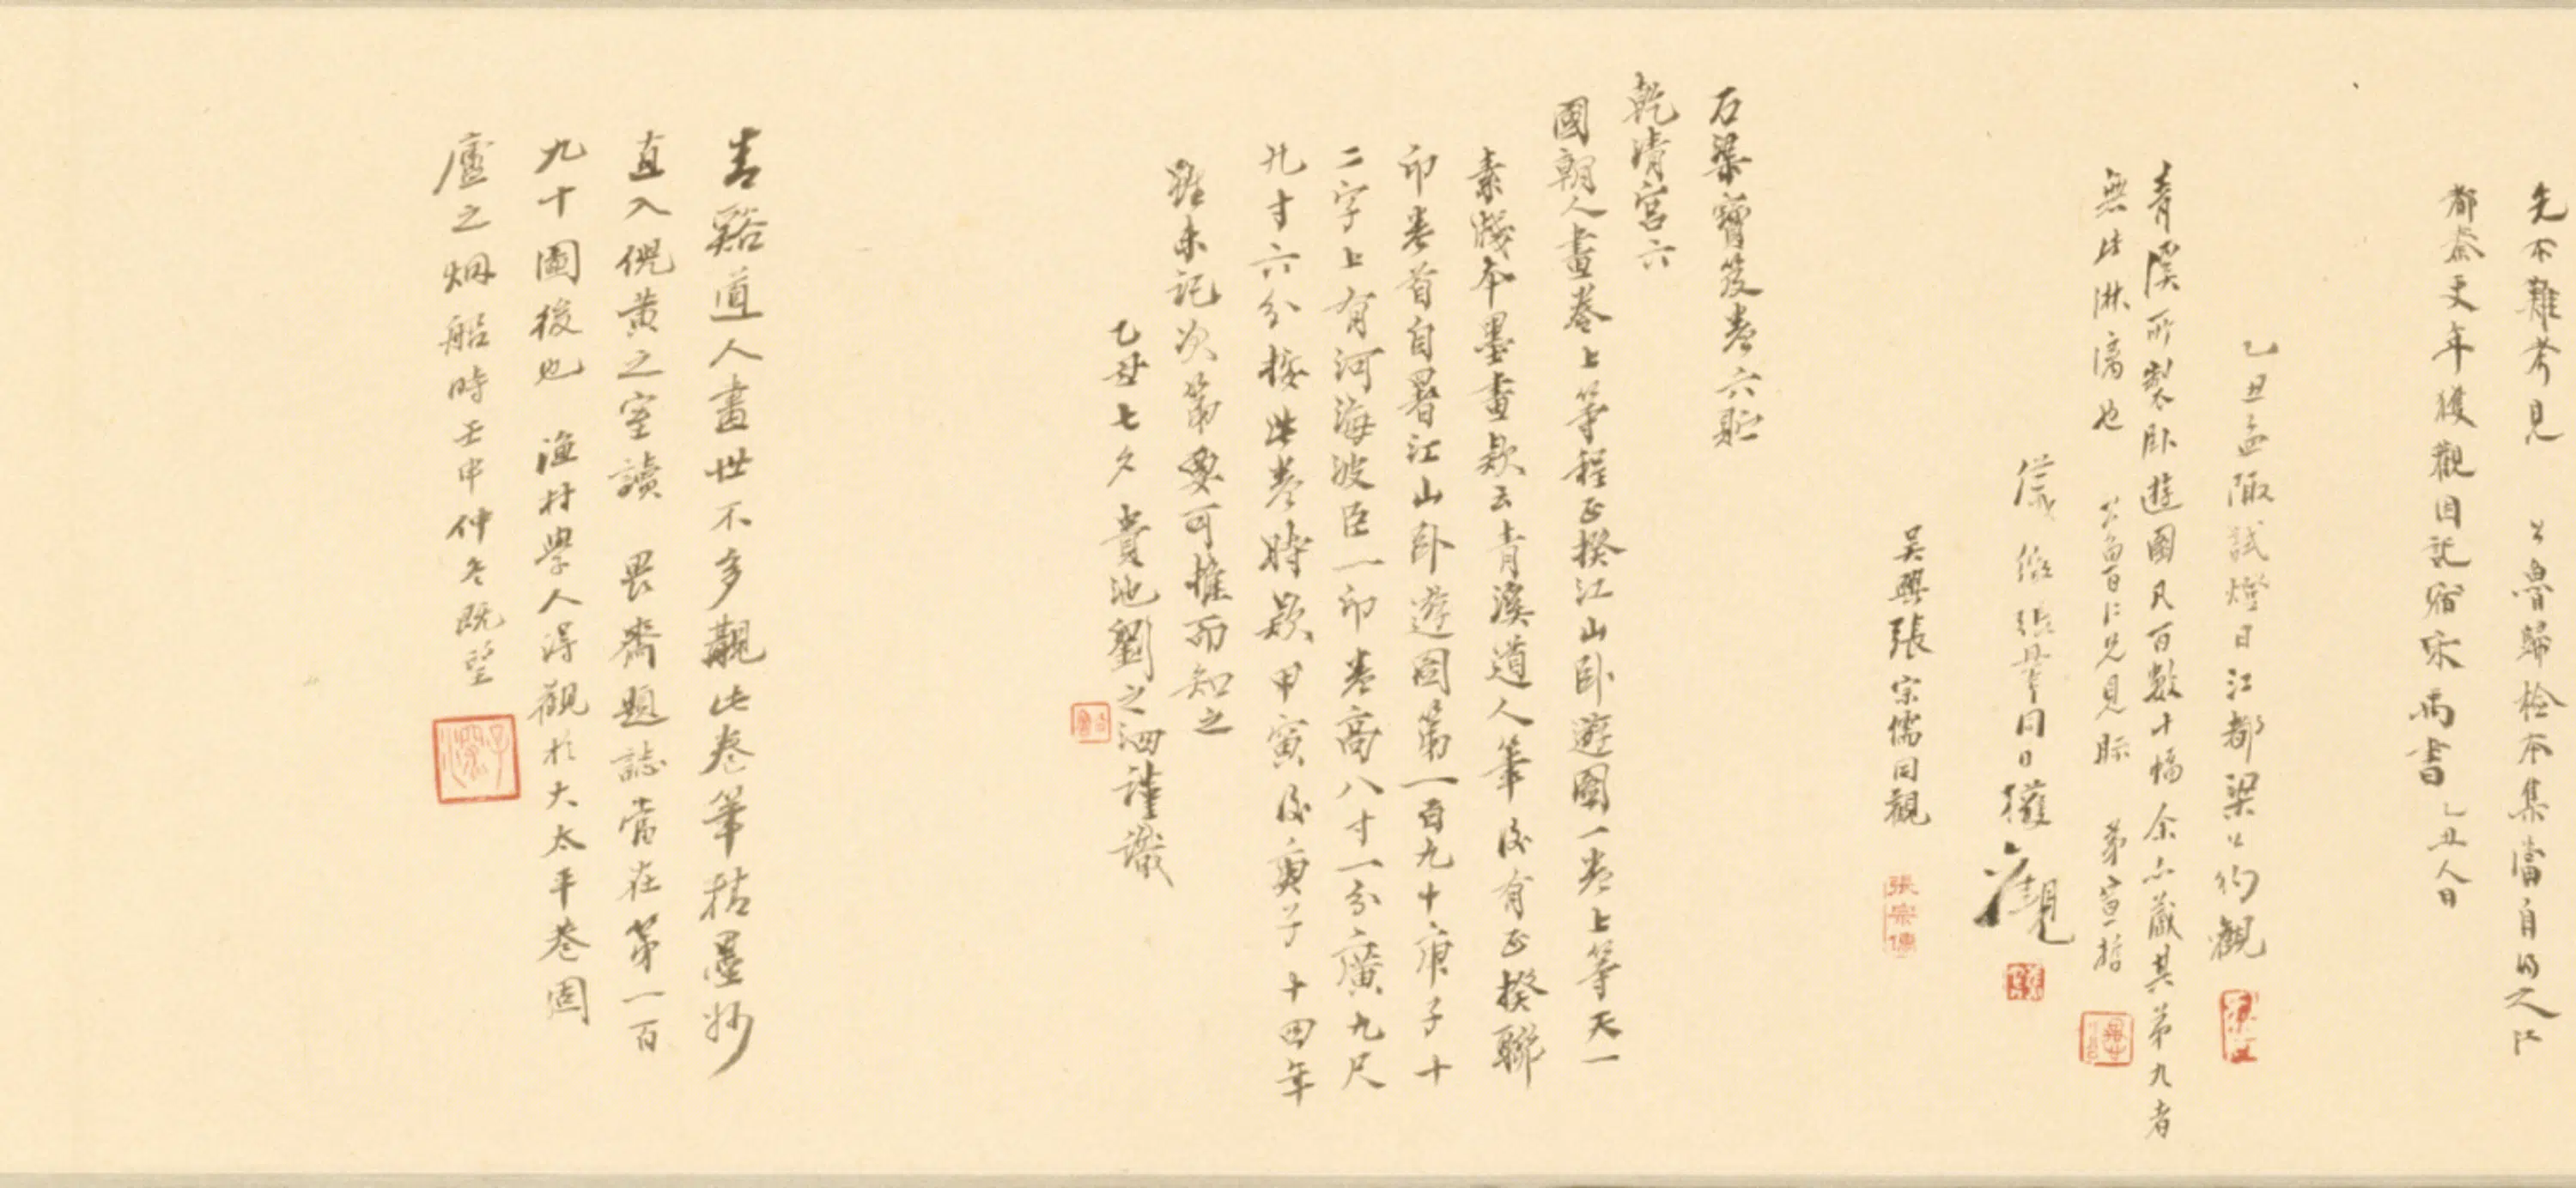 先不難考見 公魯歸檢本集當自得之江
都秦更年獲觀因記宿宋禹書 乙丑人日
乙丑孟陬試燈日江都梁公約觀
青溪所製臥遊圖凡百數十幅余亦藏其第九者
無此淋漓也 公魯仁兄見眎 弟宣哲
儀徵張丹斧同日獲觀
吳興張宗儒同觀
張宗儒
石渠寶笈卷六貯
乾清宮六
國朝人畫卷上等程正揆江山臥遊圖一卷上等天一
素牋本墨畫款云青溪道人筆後有正揆聯
印卷首自署江山臥遊圖第一百九十庚子十
二字上有河海波臣一印卷高八寸一分廣九尺
九寸六分按此卷時款甲寅後庚子十四年
雖未記次第要可推而知之
乙丑七夕貴池劉之泗謹識
青谿道人畫世不多觏此卷筆枯墨妙
直入倪黃之室讀 畏齋題誌當在第一百
九十圖後也 漁村學人得觀於大太平巷固
廬之烟船時壬申仲冬既望